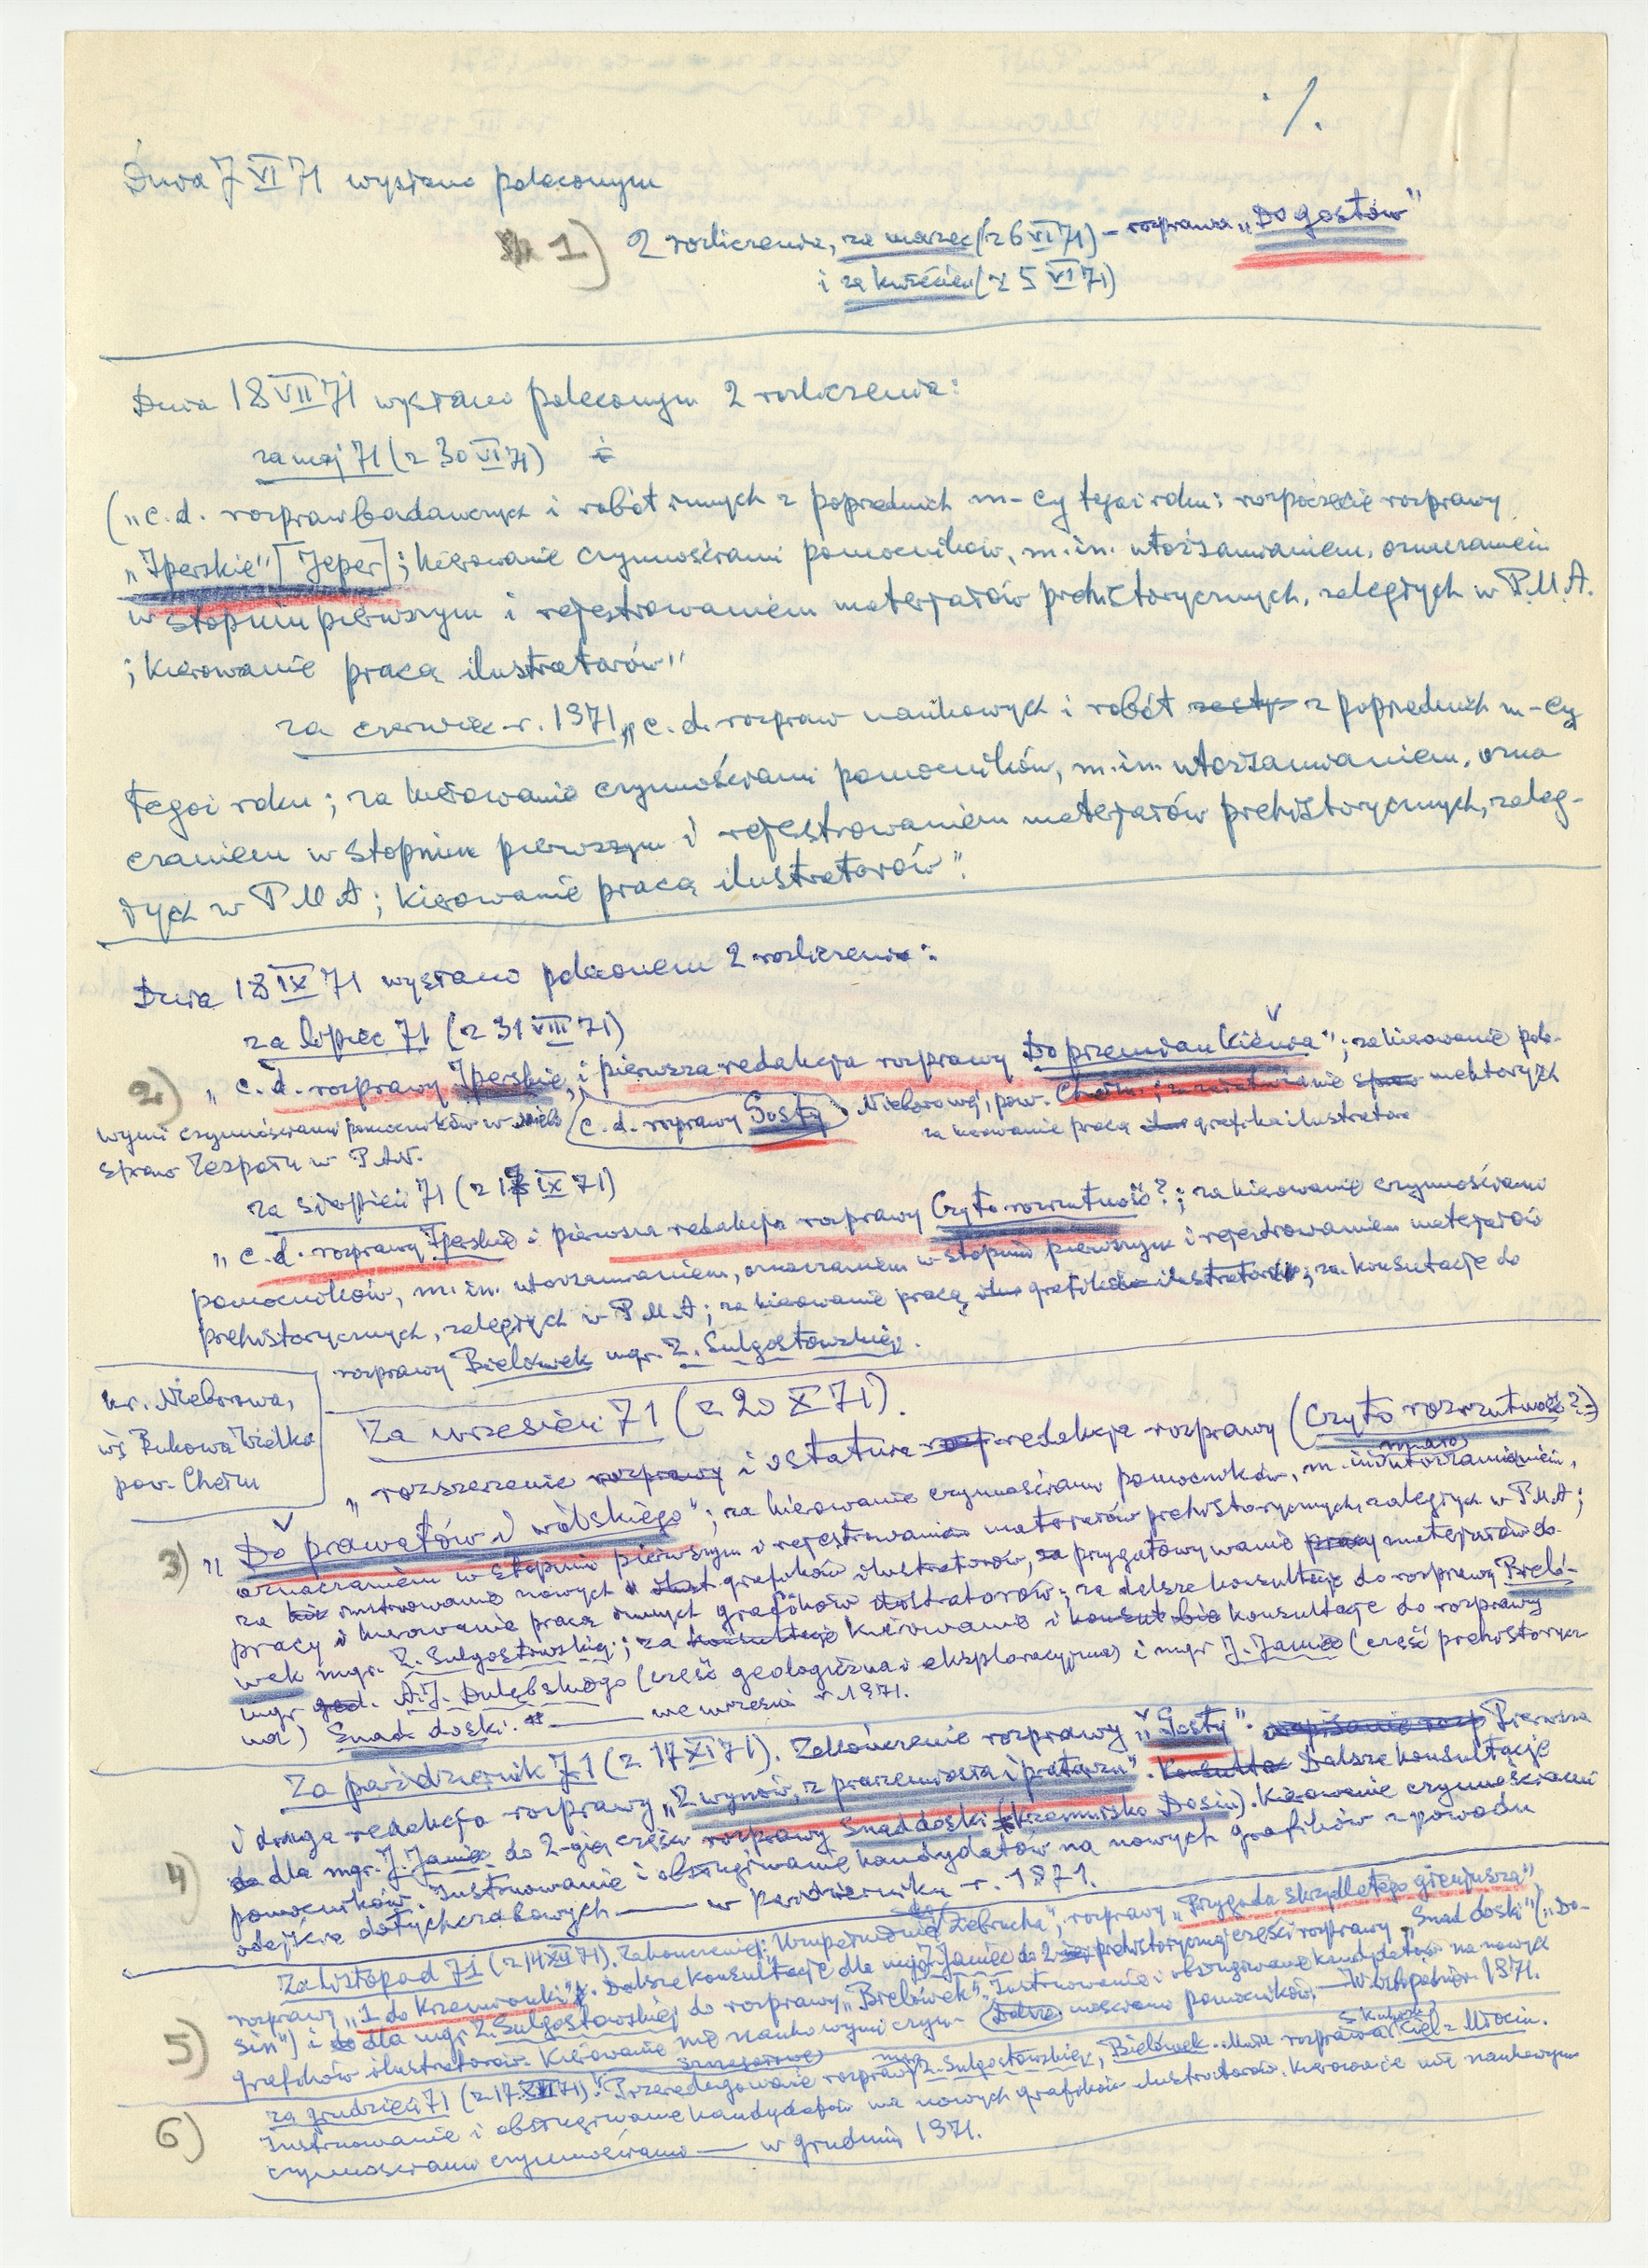 ·/.
Dnia 7 VI 71 wysłano poleconym
1) 2 rozliczenia, za marzec (z 6 VI 71) – rozprawa „Do gostów”
i za kwiecień (z 5 VI 71)
Dnia 18 VII 71 wysłano poleconym 2 rozliczenia:
za maj 71 (z 30 VI 71) i
(„c.d. rozpraw badawczych i robót innych z poprzednich m-cy tegoż roku; rozpoczęcie rozprawy
„Iperskie” [Jeper]; kierowanie czynnościami pomocników, m.in. utożsamianiem, oznaczaniem
w stopniu pierwszym i rejestrowaniem materjałów prehistorycznych, zaległych w P.M.A.
; kierowanie pracą ilustratorów”
za czerwiec r. 1971 „c.d. rozpraw naukowych i robót z poprzednich m-cy
tegoż roku; za kierowanie czynnościami pomocników, m.in. utożsamianiem, ozna
czaniem w stopniu pierwszym i rejestrowaniem materjałów prehistorycznych, zaleg-
łych w P M A; kierowanie pracą ilustratorów”.
Dnia 18 IX 71 wysłano poleconem 2 rozliczenia:
za lipiec 71 (z 31 VIII 71)
2) „c.d. rozprawy Iperskie, i pierwsza redakcja rozprawy Do przemian Kiěnia”; za kierowanie
wymi czynnościami pomocników w c.d. rozprawy Gosty Nieborowej, pow. Chełm.; za niektórych
spraw Zespołu w P.A.N. za kierowanie pracą grafika ilustratora
za sierpień 71 (z 17 IX 71)
„c.d. rozprawy Iperskie i pierwsza redakcja rozprawy Czyto rozrzutność?; za kierowanie czynnościami
pomocników, m.in. utożsamianiem, oznaczaniem w stopniu pierwszym i rejestrowaniem materjałów
prehistorycznych, zaległych w P M A; za kierowanie pracą grafika ilustratora; za konsultacje do
rozprawy Bielawek mgr. Z. Sulgostowskiej.
ur. Nieborowa,
wś Bukowa Wielka
pow. Chełm
Za wrzesień 71 (z 20 X 71).
„rozszerzenie rozprawy i ostatnia redakcja rozprawy (Czyto rozrzutność?=)
3) „Do prawetów i wolskiego”; za kierowanie czynnościami pomocników, m.in. utożsamianiem,
oznaczaniem w stopniu pierwszym i rejestrowaniem materjałów prehistorycznych, zaległych w P M A;
za instruowanie nowych grafików ilustratorów, za przygotowywanie materjałów do
pracy i kierowanie pracą innych grafików ilustratorów; za dalsze konsultacje do rozprawy Bieló-
wek mgr. Z. Sulgostowskiej; za kierowanie i konsultacje do rozprawy
mgr A.J. Dulębskiego (część geologiczna i eksploracyjna) i mgr J. Janiec (część prehistorycz
na) Snad doski. — we wrześni r. 1971.
4) Za październik 71 (z 17 XI 71). Zakończenie rozprawy „Gosty”. Pierwsza
i druga redakcja rozprawy „Z wynów, z praziemiosła i prataru”. Dalsze konsultacje
dla mgr. J. Janiec do 2-giej części rozprawy Snad doski (Krzemnisko Dosin). Kierowanie czynnościami
pomocników. Instruowanie i obsługiwanie kandydatów na nowych grafików z powodu
odejścia dotychczasowych — w październiku r. 1971.
5) Za listopad 71 (z 14 XII 71). Zakończenie: Uzupełnienie „do Zebrucha”, rozprawy „Przygoda skrzydlatego gienjusza”,
rozprawy „1 do Krzemionki”. Dalsze konsultacje dla mgr J. Janiec do 2 prehistorycznej części rozprawy „Snad doski” („Do-
sin”) i dla mgr Z. Sulgostowskiej do rozprawy „Bielówek”. Instruowanie i obsługiwanie kandydatów na nowych
grafików ilustratorów. Kierowanie nie naukowymi czynnościami pomocników. — W listopadzie r. 1971.
6) za grudzień 71 (z 17 XII 71). „Przeredagowanie rozprawy mgr Z. Sulgostowskiej, Bielówek. Mała rozprawa: Kiel z Młocin.
Instruowanie i obsługiwanie kandydatów na nowych grafików ilustratorów. Kierowanie nie naukowym
czynnościami — w grudniu 1971.